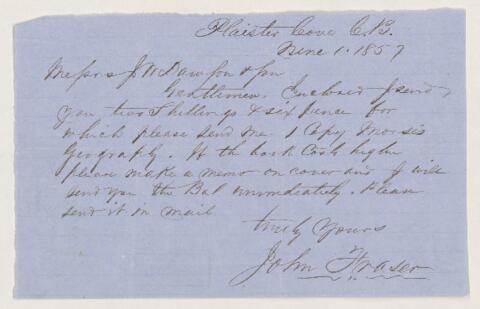 Plaister Cove C.B.
June 1. 1857
Messrs J W Dawson & Son
Gentlemen, Enclosed I send
you two Shillings & six pence for
which please send me 1 Copy Morses
Geography. If the book Costs higher
please make a memo on cover and I will
send you the Bal immediately. Please
send it in mail
truly Yours
John Fraser